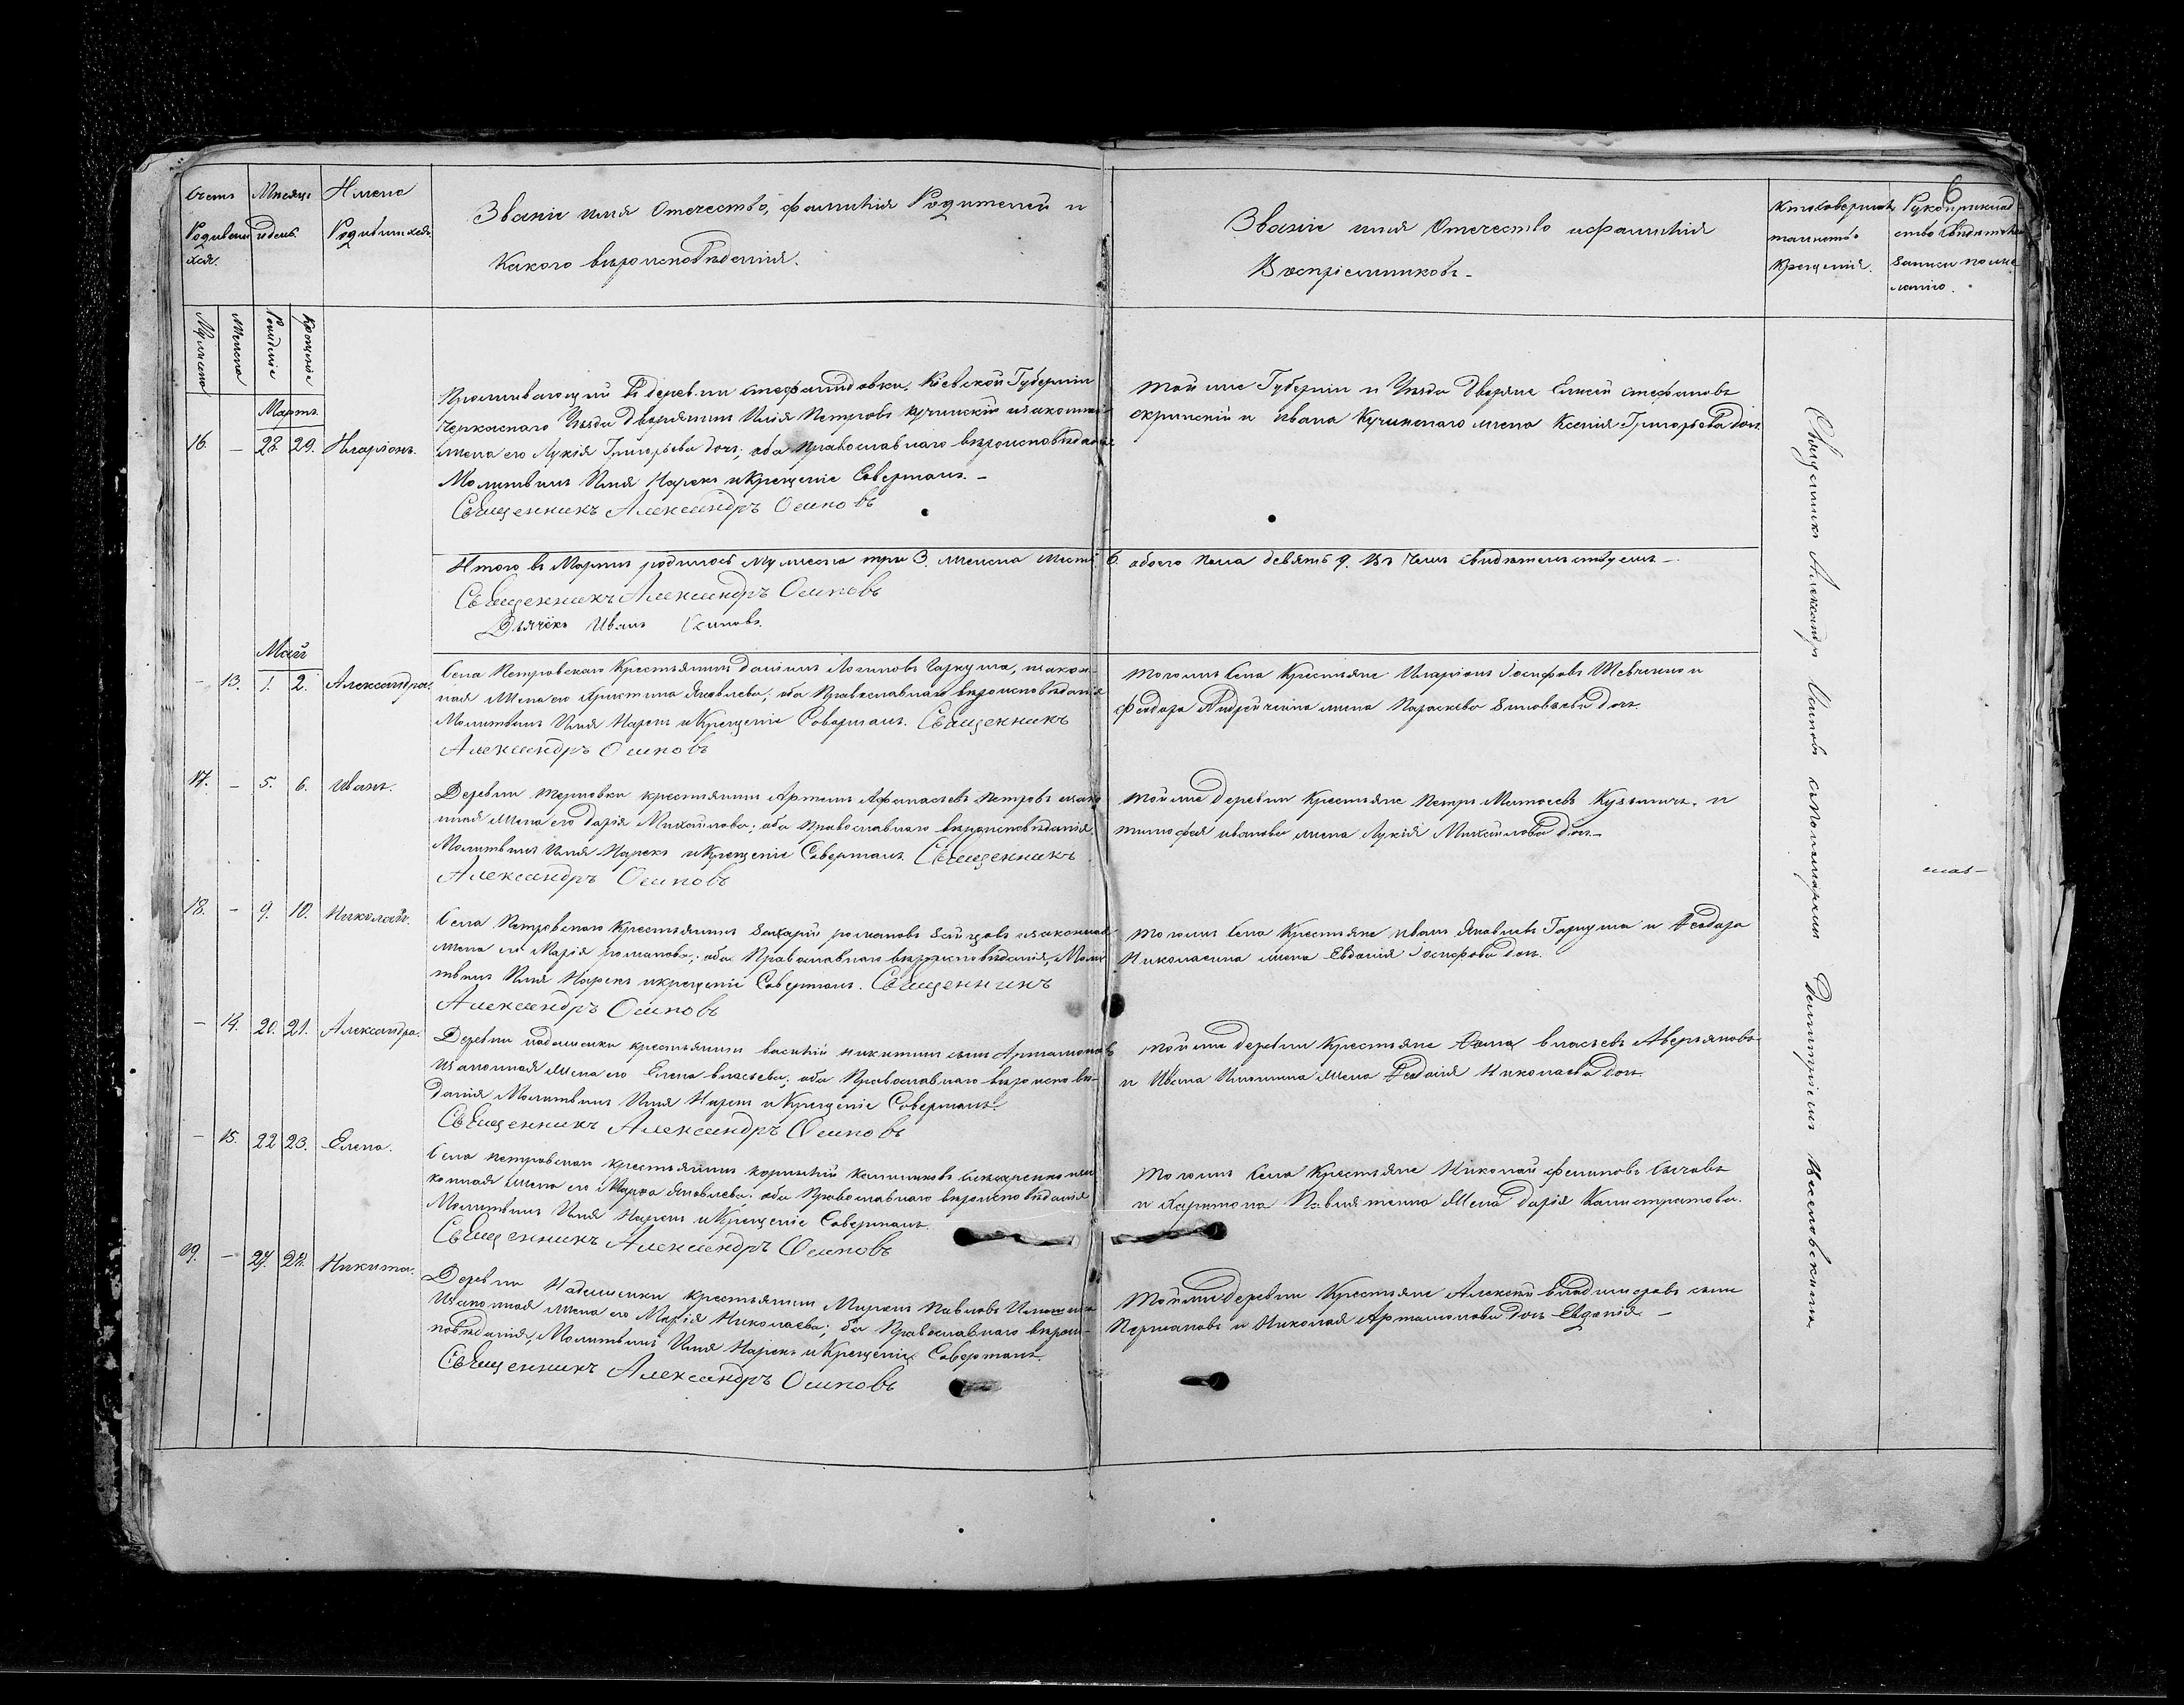 6
Счетъ Родившихся.
Мужеска
Женска
Мѣсяцъ и день.
Рожденія
Крещенія
Имена Родившихся.
Званіе имя Отечество, фамилія Родителей и
Какого вѣроисповѣданія.
Званіе имя Отечество и фамилія
Воспріемниковъ.
Кто совершалъ
таинство
Крещенія.
Рукоприклад
ство Свидѣтелей
записи по же
ланію.
Мартъ
16. – 28. 29. Иларіонъ.
Проживающій въ деревни Стефанидовки, Кіевской Губерніи
Черкаскаго Уѣзда дворянинъ Илія Петровъ Кучинскій и законная
жена его Лукія Григорьева дочь; оба православнаго вѣроисповѣданія
Молитвилъ Имя Нарекъ и Крещеніе Совершалъ. –
Священникъ Александръ Осиповъ
Той же Губерніи и Уѣзда дворяне Елисей Стефановъ
и Ивана Кучинскаго жена Ксенія Григорьева дочь
Итого въ Мартѣ родилось мужеска три 3. женска шесть 6. обоего пола девять 9. Въ чемъ свидѣтельствуемъ –
Священникъ Александръ Осиповъ
Дьячекъ Иванъ Осиповъ.
Май
– 13. 1. 2. Александра.
Села Петровскаго Крестьянинъ Даніилъ Логиновъ Гаркуша, и закон-
ная Жена его Христина Яковлева; оба Православнаго вѣроисповѣданія
Молитвилъ Имя Нарекъ и Крещеніе Совершалъ. Священникъ
Александръ Осиповъ
Тогожъ Села Крестьяне Иларіонъ Іосифовъ Шевченко и
Феодора Андрейченка жена Параскева Зиновьева дочь.
17. – 5. 6. Иванъ.
Деревни Терновки крестьянинъ Артемъ Афанасьевъ Петровъ и зако
нная жена его Дарія Михайлова; оба православнаго вѣроисповѣданія.
Молитвилъ Имя Нарекъ и Крещеніе Совершалъ. Священникъ
Александръ Осиповъ
Той же деревни Крестьяне Петръ Матвеевъ Кузьминъ, и
Тимофея Иванова жена Лукія Михайлова дочь –
18. – 9. 10. Николай.
Села Петровскаго Крестьянинъ Захарій Романовъ Зайцовъ и законная
жена его Марія Романова; оба Православнаго вѣроисповѣданія, Моли
твилъ Имя Нарекъ и крещеніе Совершалъ. Священникъ
Александръ Осиповъ
Тогожъ Села Крестьяне Иванъ Яковлевъ Гаркуша и Феодора
жена Евдокія Іосифова дочь.
– 14. 20. 21. Александра.
Деревни крестьянинъ Василій Никитинъ сынъ Артамоновъ
Законная Жена его Елена Власьева; оба Православнаго вѣроисповѣ-
данія Молитвилъ Имя Нарекъ и Крещеніе Совершалъ.
Священникъ Александръ Осиповъ
Той же деревни Крестьяне Власьевъ Аверьяновъ
и Ивана жена Феодосія Николаева дочь.
– 15. 22 23. Елена.
Села Петровскаго крестьянинъ Корнилій и за
конная жена его Марфа Яковлева; оба Православнаго вѣроисповѣданія
Молитвилъ Имя Нарекъ и Крещеніе Совершалъ.
Священникъ Александръ Осиповъ
Тогожъ Села Крестьяне Николай Филиповъ Сычовъ
и Харитона Павля Жена Дарія Калистратова.
19. – 27. 28. Никита.
Деревни Надеждовки крестьянинъ Миронъ Павловъ
Законная жена его Марія Николаева; оба Православнаго вѣрои-
повѣданія, Молитвилъ Имя Нарекъ и Крещеніе Совершалъ.
Священникъ Александръ Осиповъ
Той же деревни Крестьяне Алексѣй Владимировъ сынъ
и Николая Артамонова дочь Евдокія. –
Священникъ Александръ Осиповъ съ пономаремъ Димитріемъ Веселовскимъ